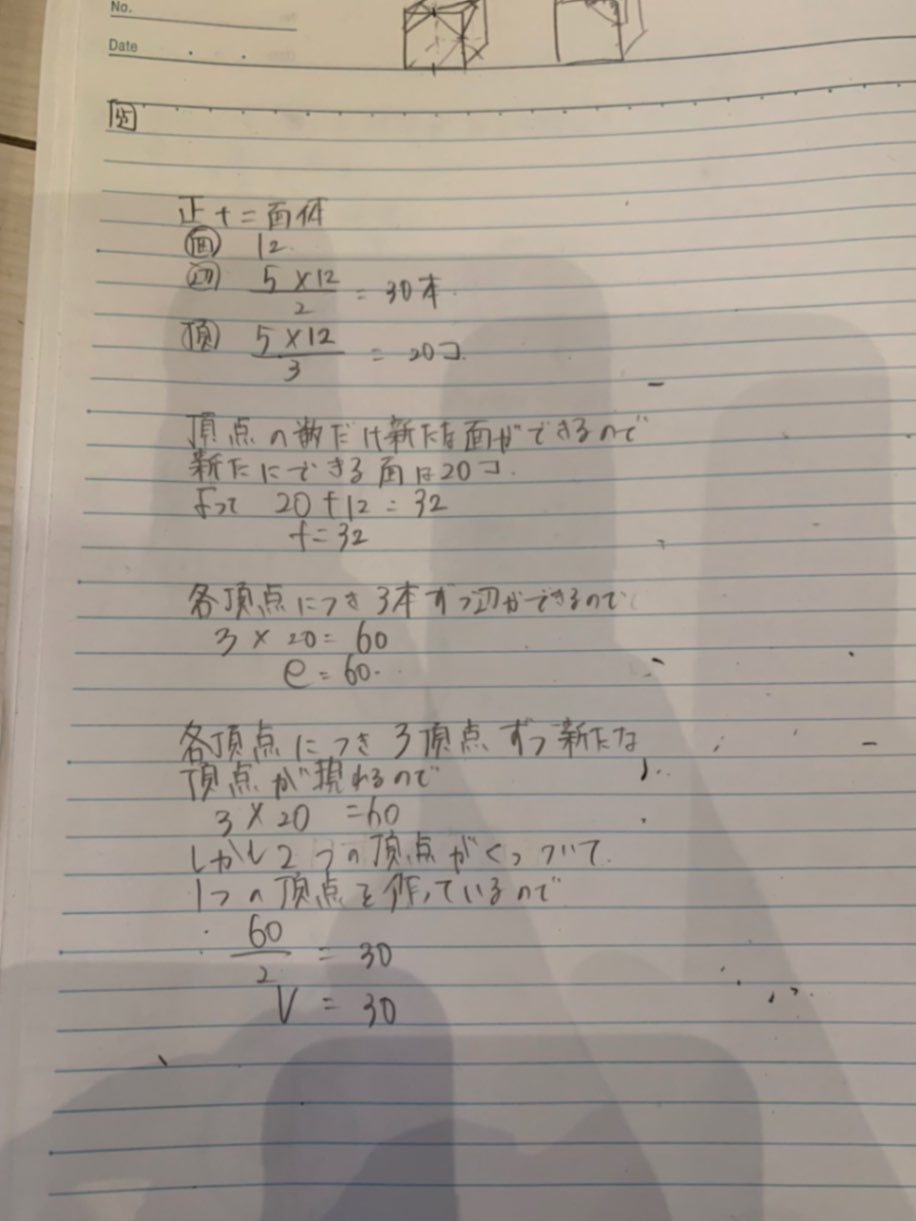 No.
Date
正十二面体
面 12
辺 5×12/2 = 30本
頂 5×12/3 = 20コ
頂点の数だけ新たな面ができるので
新たにできる面は20コ.
よって 20+12=32
f=32
各頂点につき3本ずつ辺ができるので
3×20=60
e=60.
各頂点につき3頂点ずつ新たな
頂点が現れるので
3×20=60
しかし2つの頂点がくっついて
1つの頂点を作っているので
60/2 = 30
V = 30